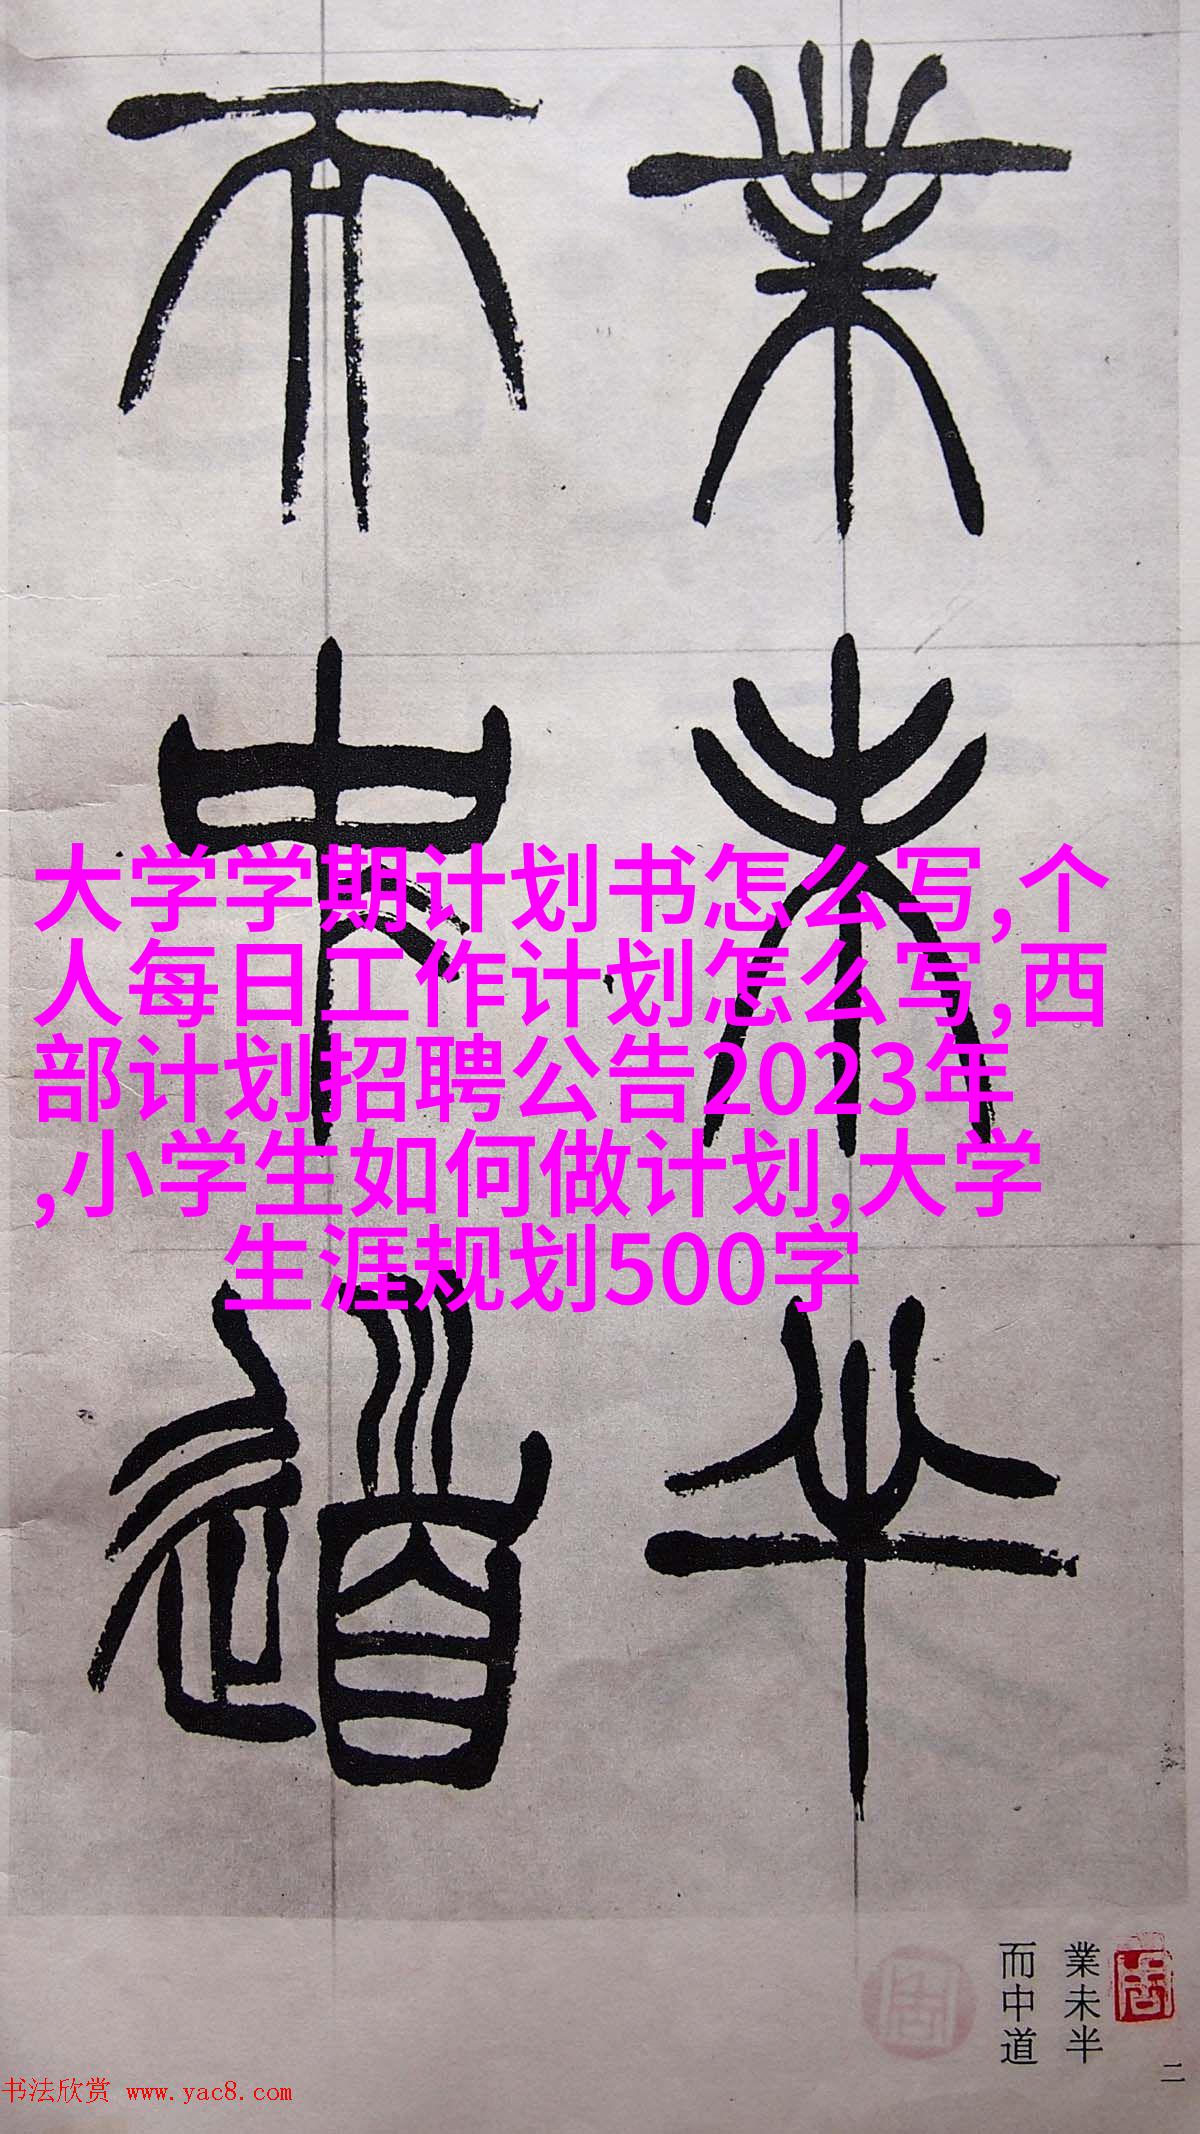 業未半
而中道
大学学期计划书怎么写,个
人每日工作计划怎么写,西
部计划招聘公告2023年
,小学生如何做计划,大学
生涯规划500字
業未半
而中道
二
书法欣赏 www.yac8.com